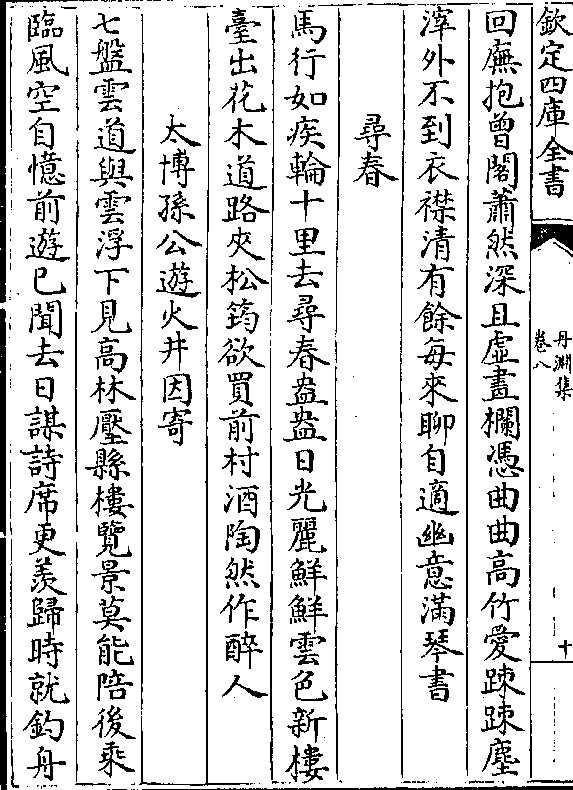 欽定四庫全書
丹淵集
卷八
十
回廡抱曾閣蕭然深且虛畫欄憑曲曲高竹愛踈踈塵
滓外不到衣襟清有餘每來聊自適幽意滿琴書
尋春
馬行如疾輪十里去尋春盎盎日光麗鮮鮮雲色新樓
臺出花木道路夾松筠欲買前村酒陶然作醉人
太博孫公遊火井因寄
七盤雲道與雲浮下見高林壓縣樓覽景莫能陪後乘
臨風空自憶前遊已聞去日謀詩席更羨歸時就釣舟